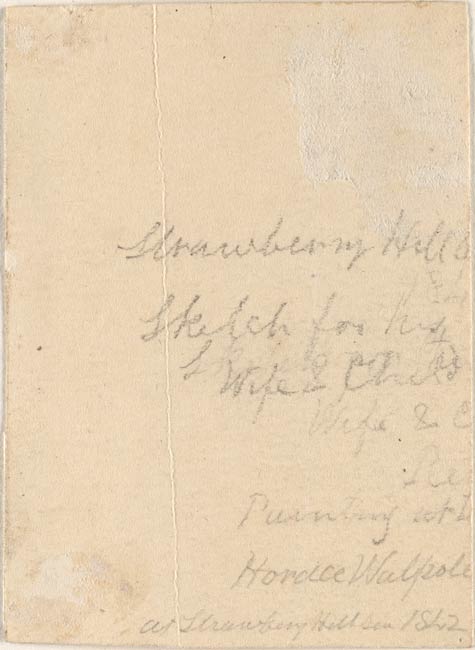 Strawberry Hill
Sketch for his
Wife & Child
Wife & C
Re
Painting at
Horace Walpole
at Strawberry Hill in 1842